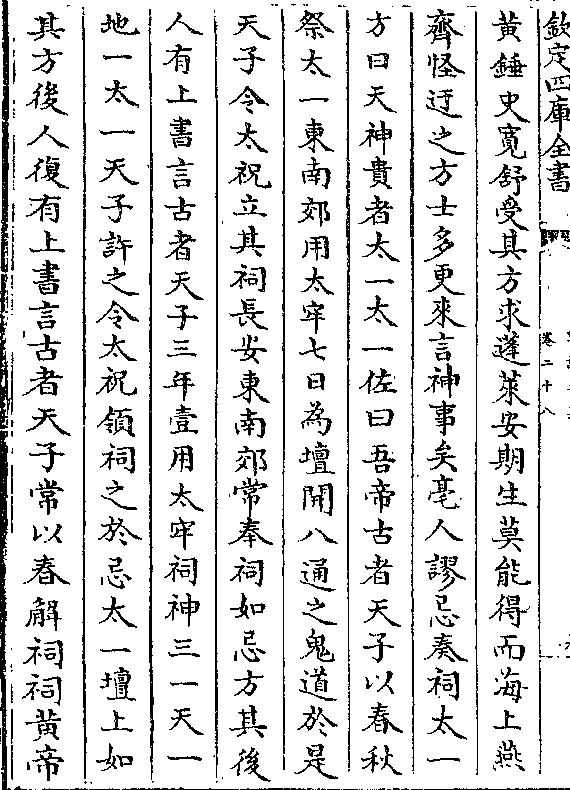 欽定四庫全書
卷二十八
黄錘史寛舒受其方求蓬萊安期生莫能得而海上燕
齊怪迂之方士多更來言神事矣亳人謬忌奏祠太一
方曰天神貴者太一太一佐曰吾帝古者天子以春秋
祭太一東南郊用太牢七日為壇開八通之鬼道於是
天子令太祝立其祠長安東南郊常奉祠如忌方其後
人有上書言古者天子三年壹用太牢祠神三一天一
地一太一天子許之令太祝領祠之於忌太一壇上如
其方後人復有上書言古者天子常以春解祠祠黄帝